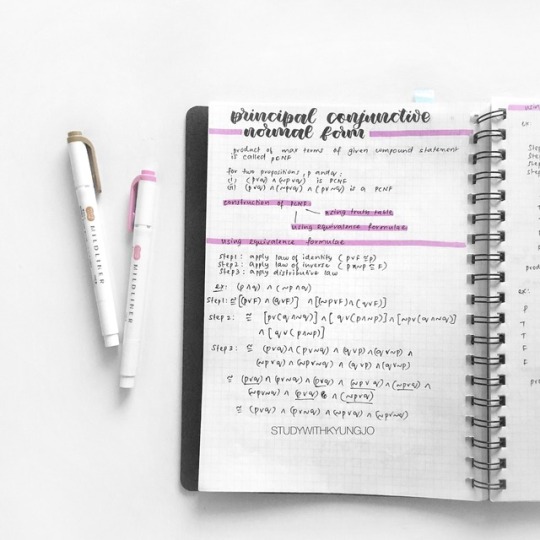 principal conjunctive
normal form
product of max terms of given compound statement
is called PCNF
for two propositions, p and q:
i) (p∨q) ∧ (~p∨q) is PCNF
ii) (p∨q) ∧ (~p∨q) ∧ (p∨~q) is a PCNF
construction of PCNF
using truth table
using equivalence formulae
using equivalence formulae
step1: apply law of identity (p∨F ≅ p)
step2: apply law of inverse (p∧~p ≅ F)
step3: apply distributive law
ex: (p∧q) ∧ (~p∧q)
step1: ≅ [(p∨F) ∧ (q∨F)] ∧ [(~p∨F) ∧ (q∨F)]
step 2: ≅ [p∨(q∧~q)] ∧ [q∨(p∧~p)] ∧ [~p∨(q∧~q)]
∧ [q∨(p∧~p)]
step 3: ≅ (p∨q) ∧ (p∨~q) ∧ (q∨p) ∧ (q∨~p) ∧
(~p∨q) ∧ (~p∨~q) ∧ (q∨p) ∧ (q∨~p)
≅ (p∨q) ∧ (p∨~q) ∧ (p∨q) ∧ (~p∨q) ∧ (~p∨q) ∧
(~p∨~q) ∧ (p∨q) ∧ (~p∨q)
≅ (p∨q) ∧ (p∨~q) ∧ (~p∨q) ∧ (~p∨~q)
STUDYWITHKYUNGJO
MILDLINER
MILDLINER
ex:
ex:
P
T
T
F
F